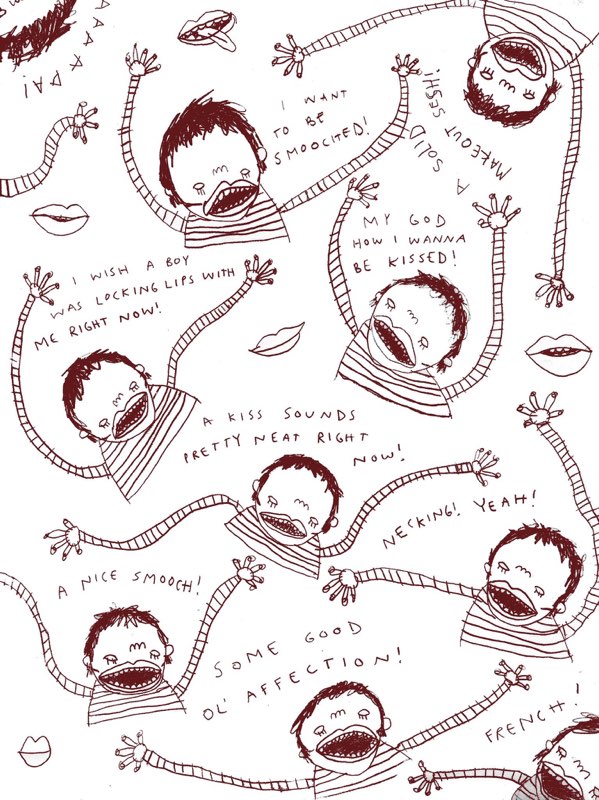 AAAAAA!
I WANT
TO BE
SMOOCHED!
A SOLID
MAKEOUT SESH!
MY GOD
HOW I WANNA
BE KISSED!
I WISH A BOY
WAS LOCKING LIPS WITH
ME RIGHT NOW!
A KISS SOUNDS
PRETTY NEAT RIGHT
NOW!
NECKING! YEAH!
A NICE SMOOCH!
SOME GOOD
OL' AFFECTION!
FRENCH!